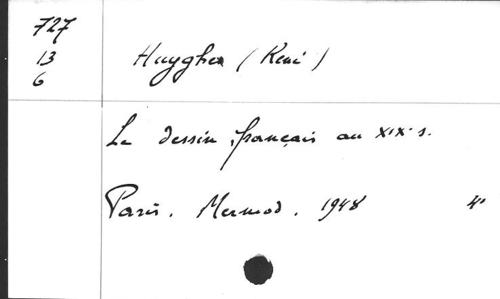 727
13
6
Huyghe (René)
Le dessin français au XIXe s.
Paris. Mermod. 1948 4°